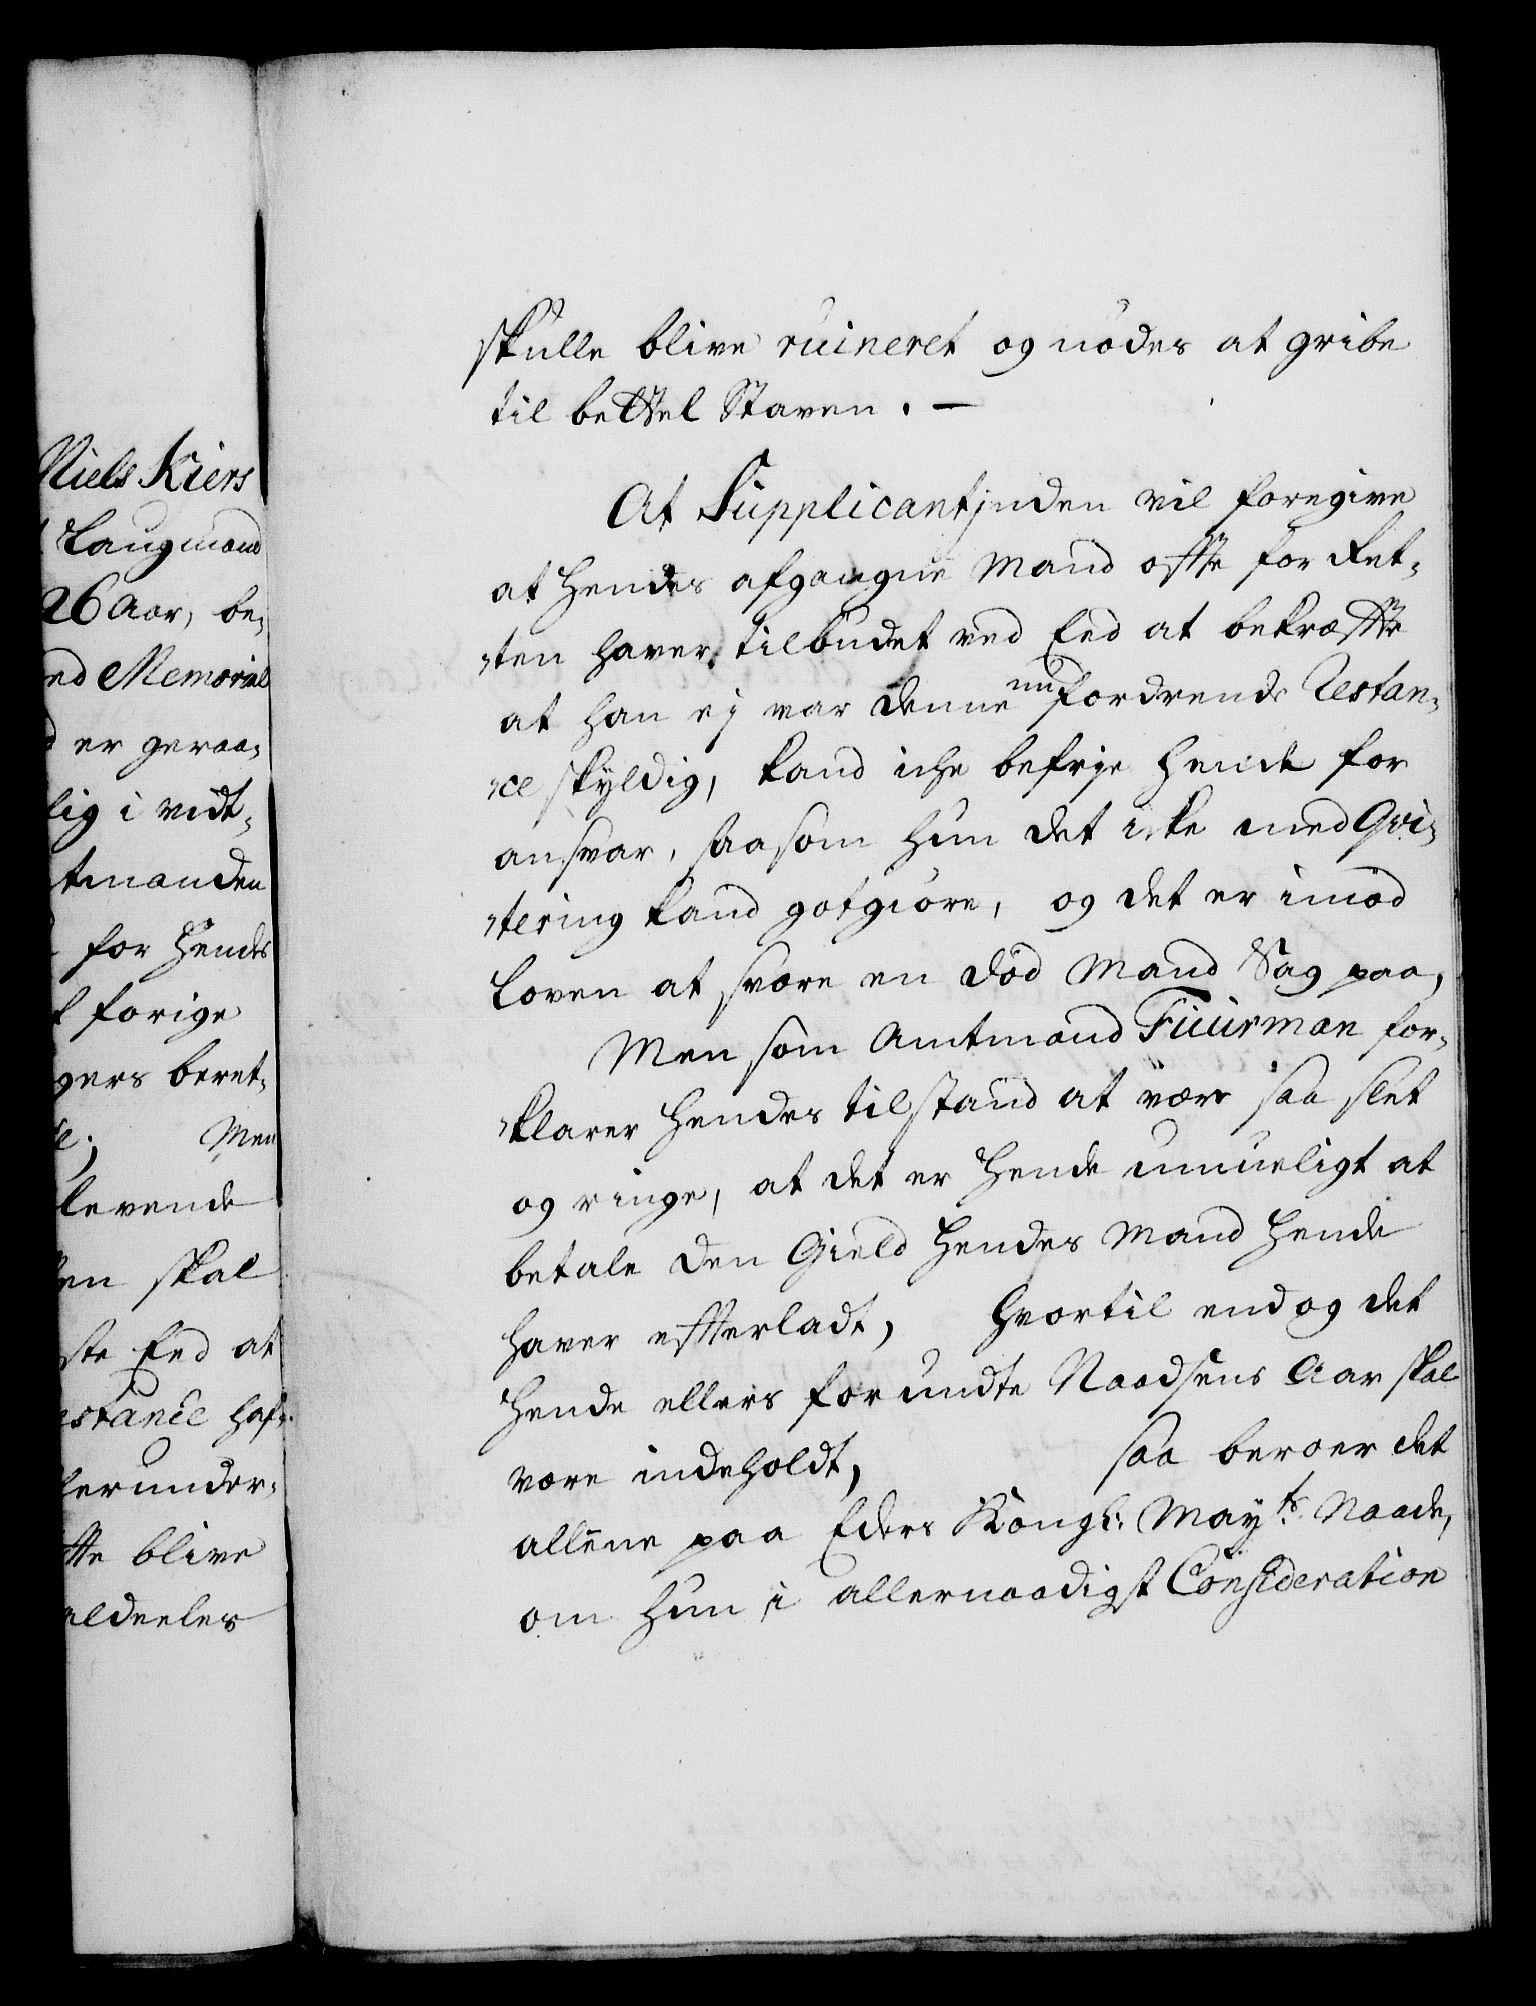 Niels Kiers
Laugmand
26 Aar, be-
nd Memorial
d er geraa-
lig i vidt-
tmanden
for Hendes
forige
gers beret-
Men
levende
en skal
ste Eed at
estance haf-
erunder-
tte blive
aldeeles
skulle blive ruineret og nödes at gribe
til bettel Staven. —
At Supplicantinden vil foregive
at Hendes afgangne Mand offte for Ret-
ten haver tilbudet ved Eed at bekræffte
at han ej var denne nu fordrende Restan-
ce skyldig, kand iche befrije Hende for
ansvar, saasom hun det icke med Qvi-
tering kand gotgiöre, og det er imod
Loven at svære en död Mand Sag paa,
Men som Amtmand Fuurman for-
klarer Hendes tilstand at være saa slet
og ringe, at det er Hende umueligt at
betale den Gield Hendes Mand Hende
haver effterladt, Hvortil endog det
Hende ellers forundte Naadsens Aar skal
være indeholdt, saa beroer det
allene paa Eders Kongl: Mayts. Naade,
om hun i allernaadigst Consideration